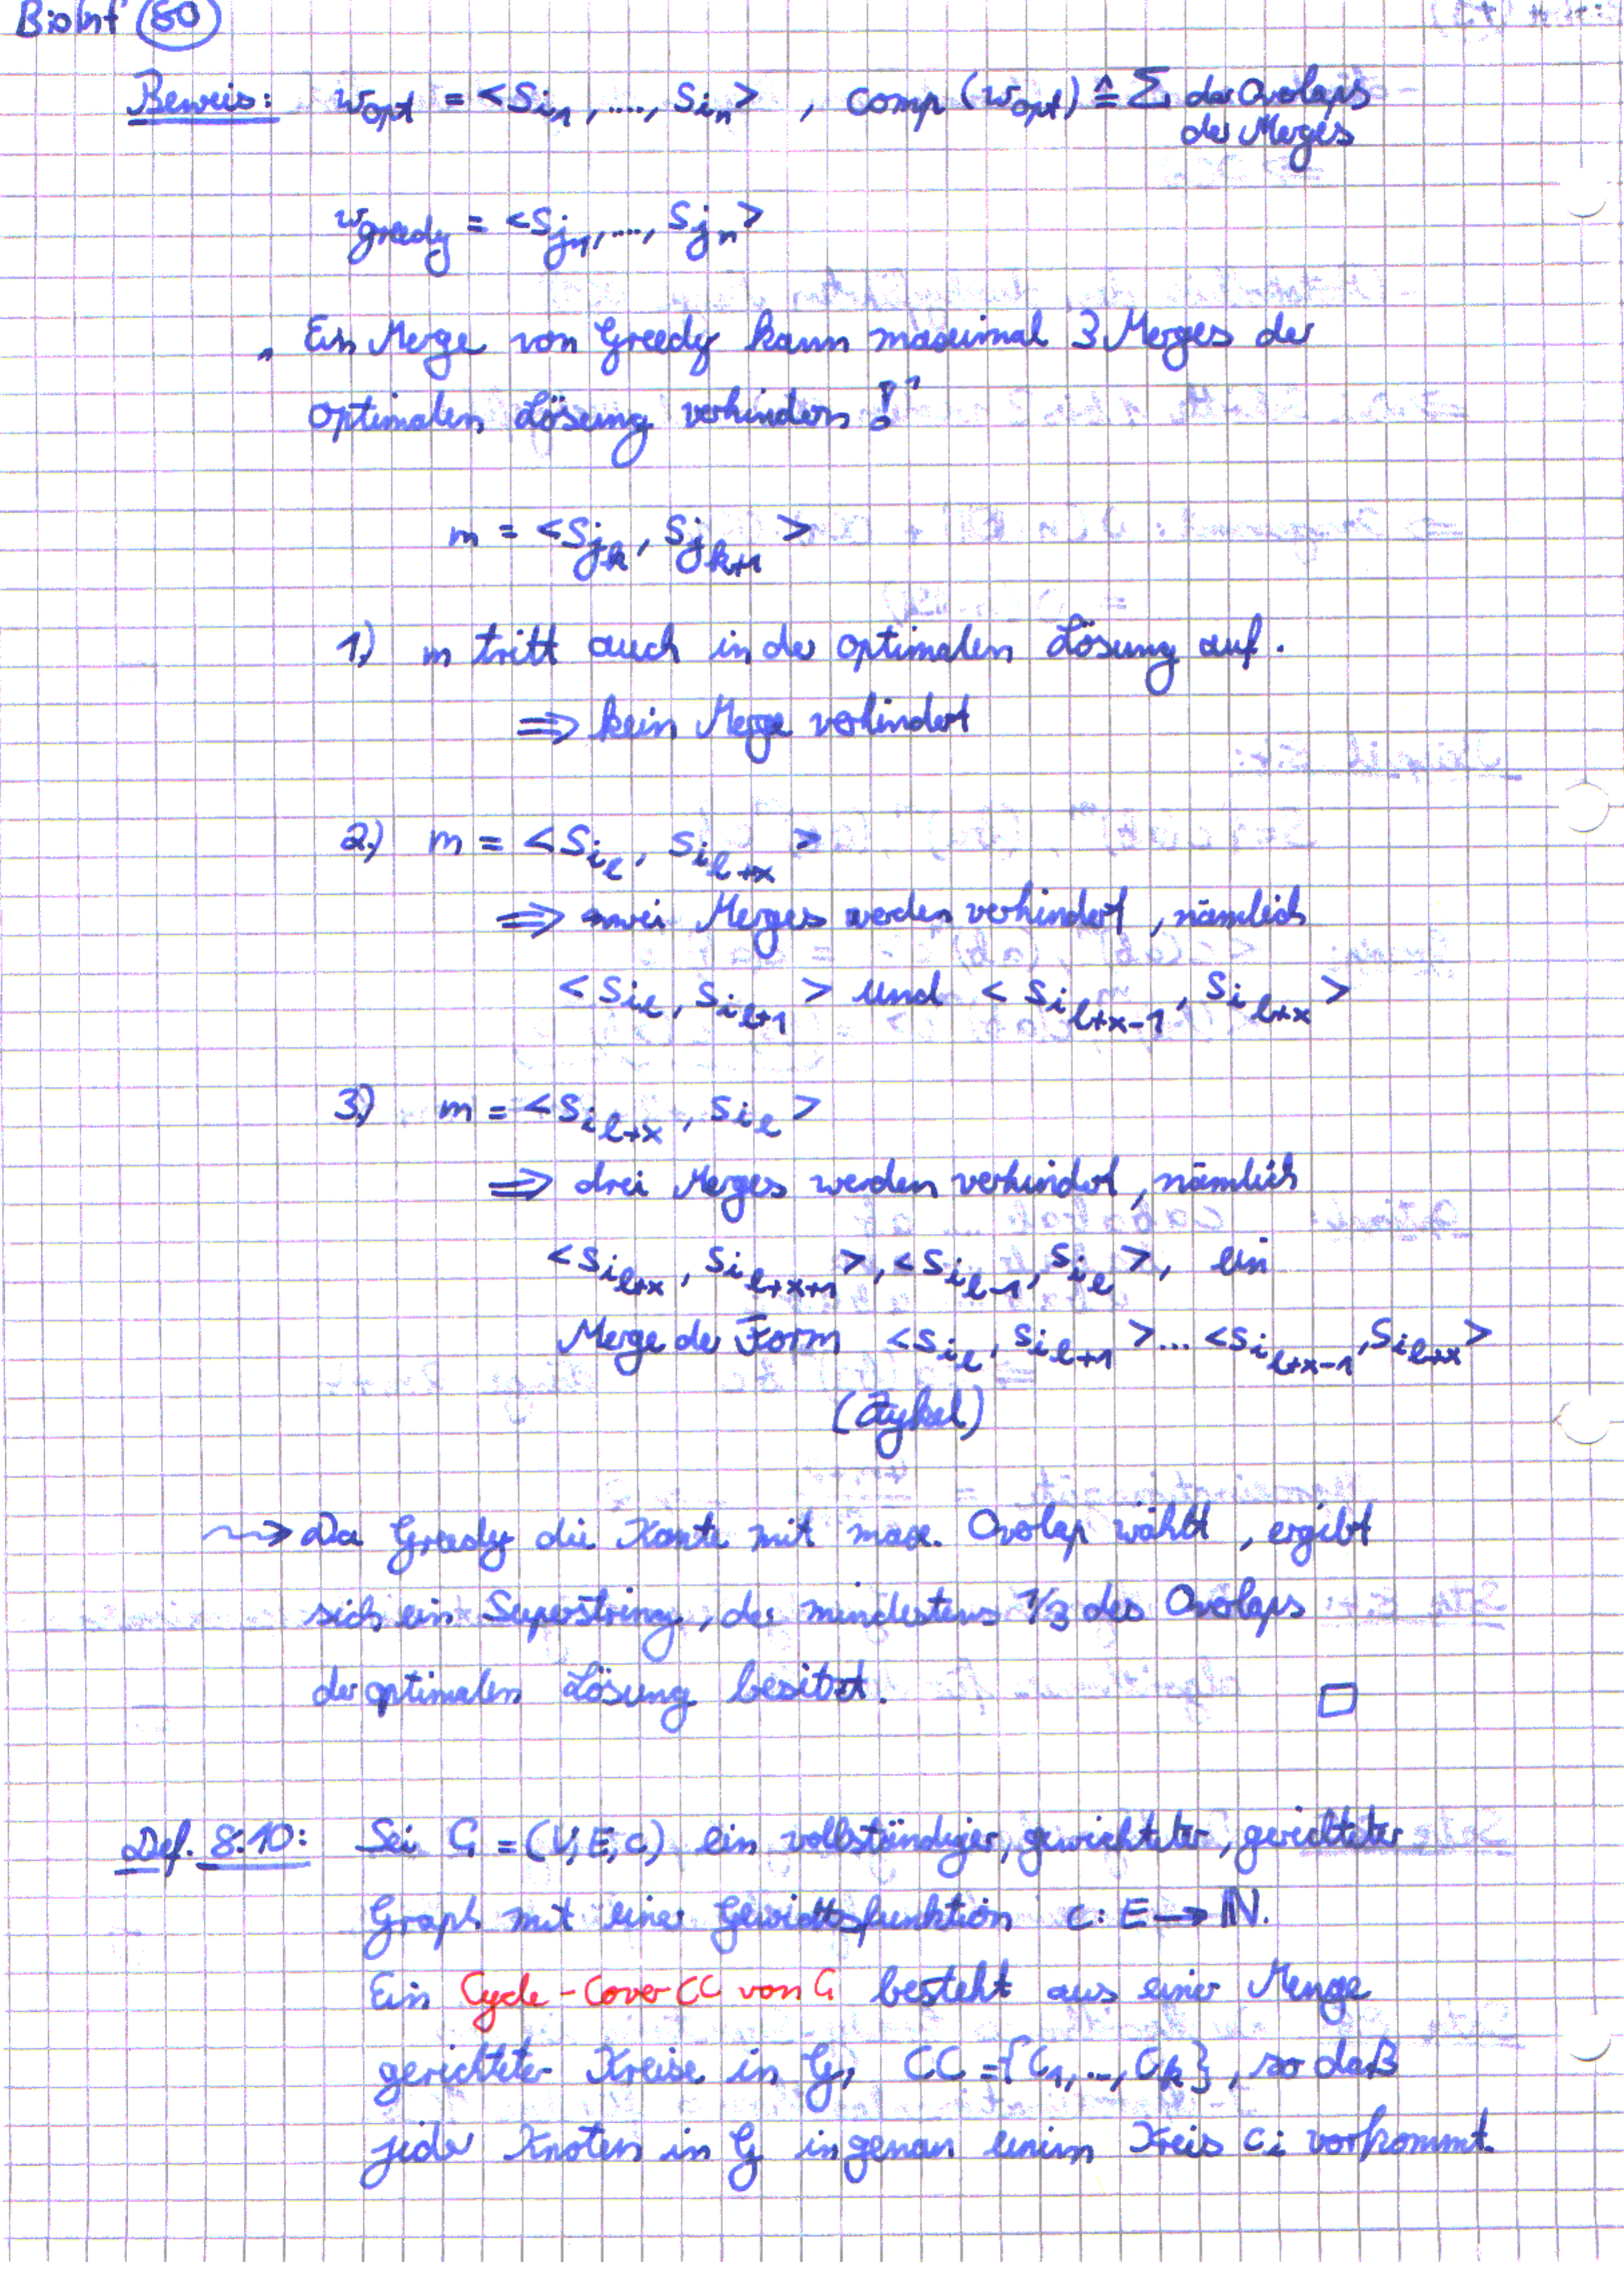 BioInf 80
Beweis: w_opt = <s_{i_1}, ...., s_{i_n}> , comp (w_opt) ≙ Σ der Overlaps
der Merges
w_greedy = <s_{j_1}, ..., s_{j_n}>
„ Ein Merge von Greedy kann maximal 3 Merges der
optimalen Lösung verhindern!"
m = <s_{j_k}, s_{j_{k+1}}>
1) m tritt auch in der optimalen Lösung auf.
⇒ kein Merge verhindert
2.) m = <s_{i_l}, s_{i_{l+x}}>
⇒ zwei Merges werden verhindert, nämlich
<s_{i_l}, s_{i_{l+1}}> und <s_{i_{l+x-1}}, s_{i_{l+x}}>
3.) m = <s_{i_{l+x}}, s_{i_l}>
⇒ drei Merges werden verhindert, nämlich
<s_{i_{l+x}}, s_{i_{l+x+1}}>, <s_{i_{l-1}}, s_{i_l}>, ein
Merge der Form <s_{i_l}, s_{i_{l+1}}>... <s_{i_{l+x-1}}, s_{i_{l+x}}>
(Zykel)
⇝ Da Greedy die Kante mit max. Overlap wählt, ergibt
sich ein Superstring, der mindestens 1/3 des Overlaps
der optimalen Lösung besitzt. □
Def. 8.10: Sei G = (V, E, c) ein vollständiger, gewichteter, gerichteter
Graph mit einer Gewichtsfunktion c: E → ℕ.
Ein Cycle-Cover CC von G besteht aus einer Menge
gerichteter Kreise in G, CC = {c_1, ..., c_k}, so daß
jeder Knoten in G in genau einem Kreis c_i vorkommt.